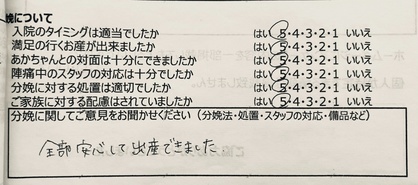 娩について
入院のタイミングは適当でしたか はい 5・4・3・2・1 いいえ
満足の行くお産が出来ましたか はい 5・4・3・2・1 いいえ
あかちゃんとの対面は十分にできましたか はい 5・4・3・2・1 いいえ
陣痛中のスタッフの対応は十分でしたか はい 5・4・3・2・1 いいえ
分娩に対する処置は適切でしたか はい 5・4・3・2・1 いいえ
ご家族に対する配慮はされていましたか はい 5・4・3・2・1 いいえ
分娩に関してご意見をお聞かせください（分娩法・処置・スタッフの対応・備品など）
全部安心して出産できました